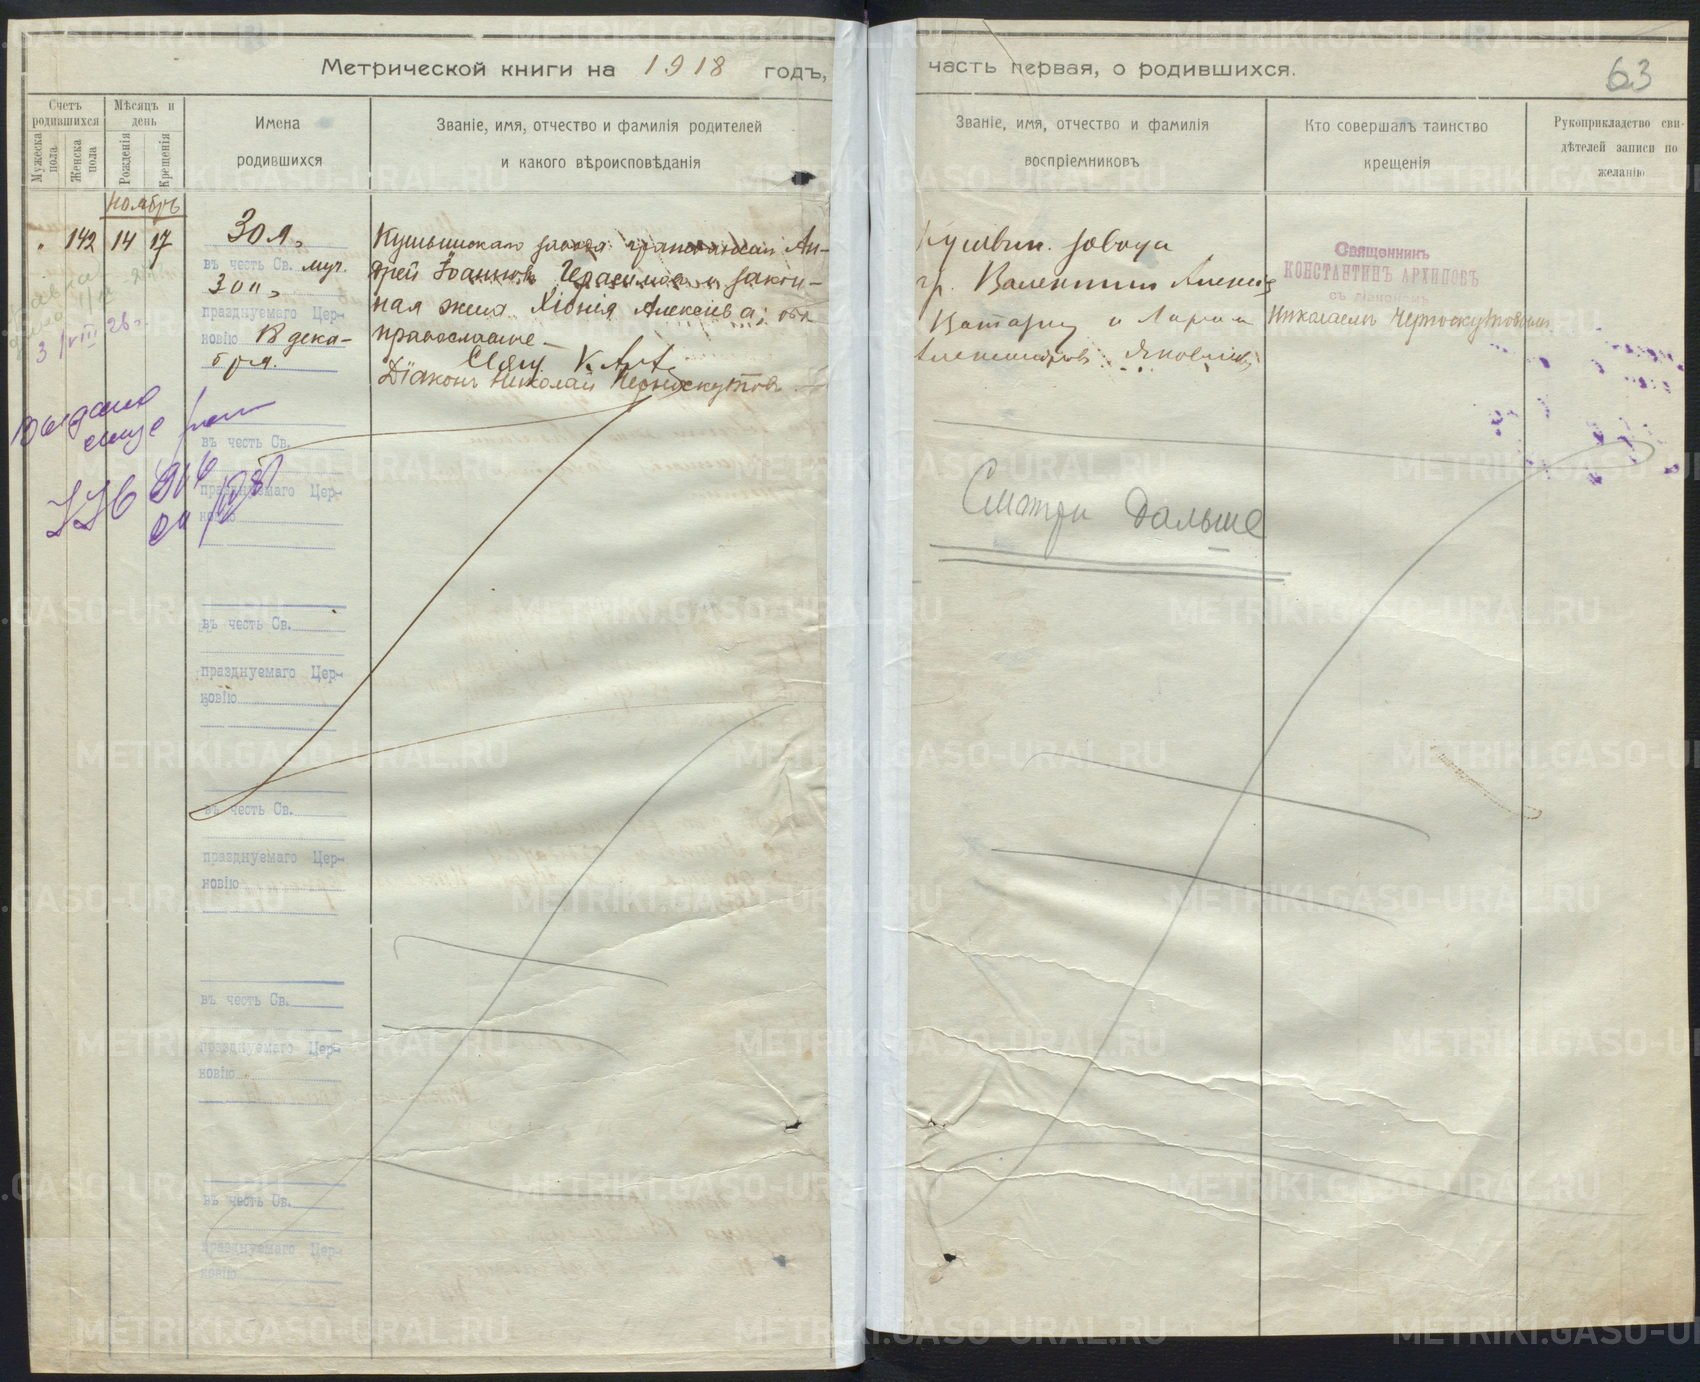 Метрической книги на 1918 годъ,
часть первая, о родившихся.
63
Счетъ родившихся
Мужеска пола
Женска пола
Мѣсяцъ и день
Рожденія
Крещенія
Имена родившихся
Званіе, имя, отчество и фамилія родителей
и какого вѣроисповѣданія
Званіе, имя, отчество и фамилія
воспріемниковъ
Кто совершалъ таинство
крещенія
Рукоприкладство сви-
дѣтелей записи по
желанію
ноябрь
142 14 17
Зоя,
въ честь Св. муч.
Зои,
празднуемаго Цер-
новію В дека-
бря.
Кушвинскаго завода гражданин Ан-
дрей Іоаннов Герасимов и закон-
ная жена Хіонія Алексѣева; оба
православные
Свящ. К. Арх.
Діаконъ Николай Черноскутов
Кушвин. завода
гр. Валентин
и
Священникъ
КОНСТАНТИНЪ АРХИПОВЪ
съ діакономъ
Николаемъ Черноскутовым
3/VIII 26 г.
Выдано
еще
въ честь Св.
празднуемаго Цер-
новію
Смотри дальше
въ честь Св.
празднуемаго Цер-
новію
въ честь Св.
празднуемаго Цер-
новію
въ честь Св.
празднуемаго Цер-
новію
въ честь Св.
празднуемаго Цер-
новію
METRIKI.GASO-URAL.RU